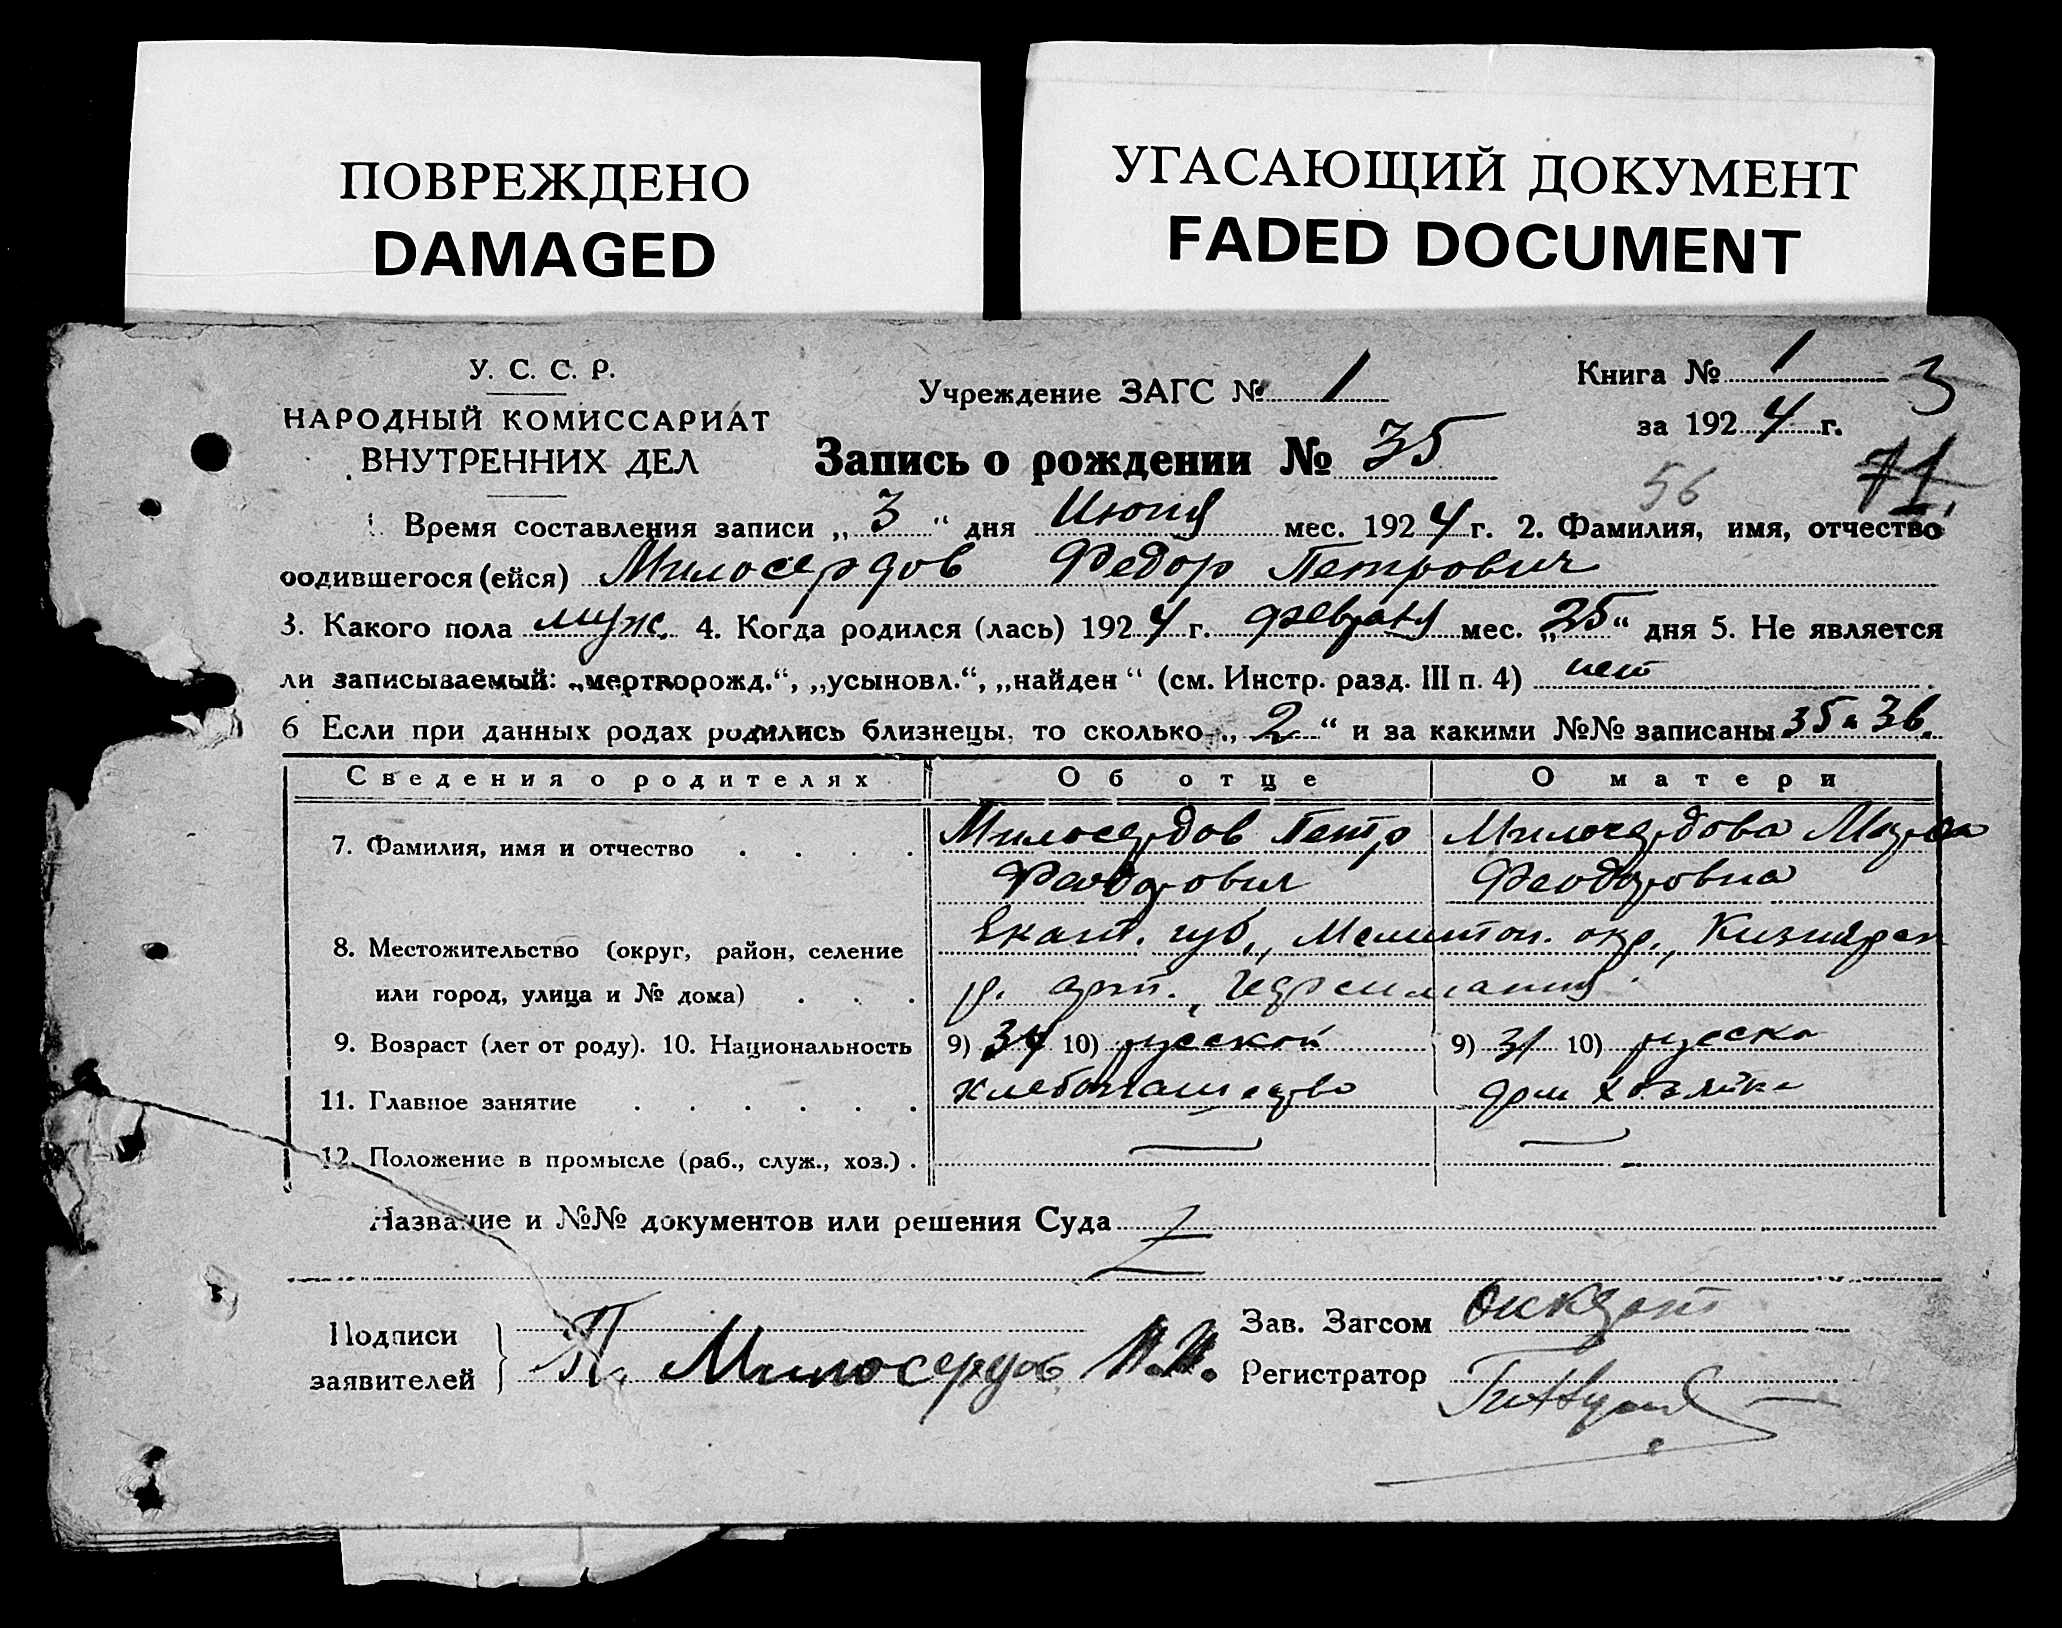 ПОВРЕЖДЕНО
DAMAGED
УГАСАЮЩИЙ ДОКУМЕНТ
FADED DOCUMENT
У. С. С. Р.
НАРОДНЫЙ КОМИССАРИАТ
ВНУТРЕННИХ ДЕЛ
Учреждение ЗАГС № 1
Книга № 1 3
за 1924 г.
Запись о рождении № 35
56 71.
1. Время составления записи „3“ дня Июня мес. 1924 г. 2. Фамилия, имя, отчество
родившегося (ейся) Милосердов Федор Петрович
3. Какого пола муж. 4. Когда родился (лась) 1924 г. февраля мес. „25“ дня 5. Не является
ли записываемый: „мертворожд.“, „усыновл.“, „найден“ (см. Инстр. разд. III п. 4) нет
6 Если при данных родах родились близнецы, то сколько „2“ и за какими №№ записаны 35 и 36.
Сведения о родителях Об отце О матери
7. Фамилия, имя и отчество Милосердов Петр Милосердова Мария
Феодорович Феодоровна
8. Местожительство (округ, район, селение Екат. губ., Мелитоп. окр.,
или город, улица и № дома) р. арт.
9. Возраст (лет от роду). 10. Национальность 9) 34 10) русской 9) 31 10) русско
11. Главное занятие хлебопашество дом хозяйка
12. Положение в промысле (раб., служ., хоз.) — —
Название и №№ документов или решения Суда
Подписи
заявителей П. Милосердов
Зав. Загсом
Регистратор